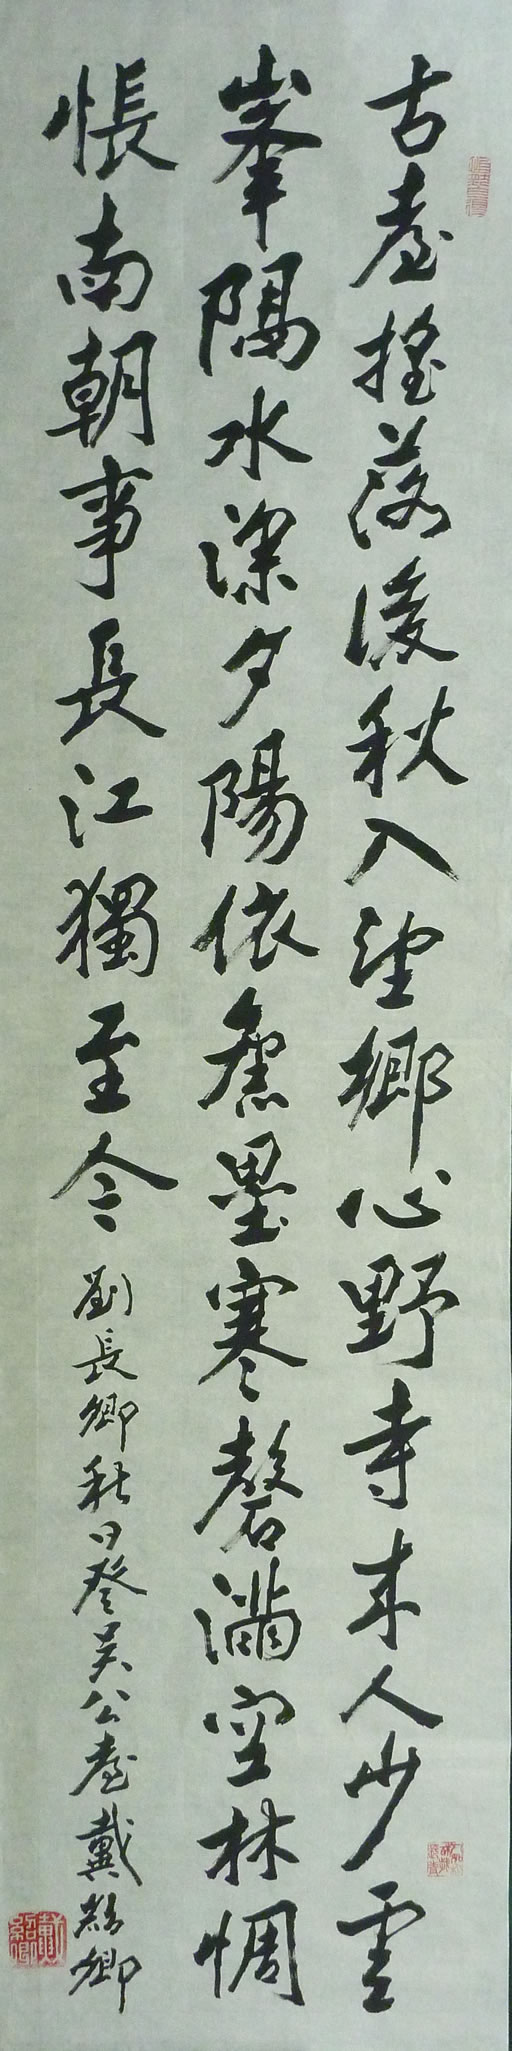 古臺搖落後秋入望鄉心野寺來人少雲
峯隔水深夕陽依舊壘寒磬滿空林惆
悵南朝事長江獨至今
劉長卿秋日登吳公臺戴紹卿
戴紹卿